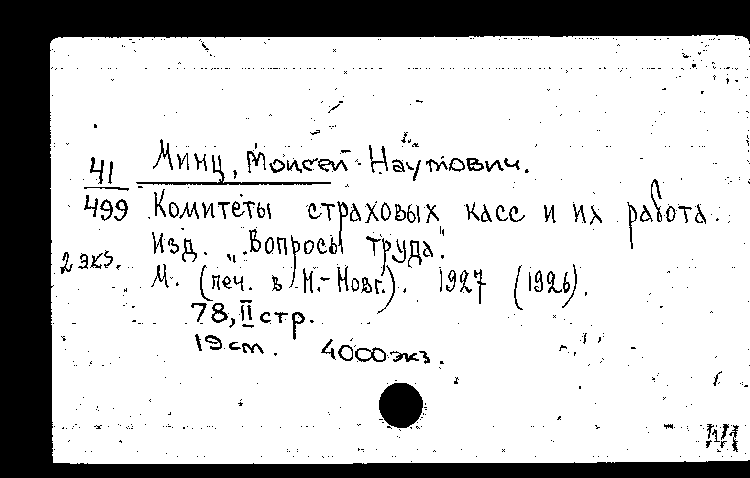 41
499
2 экз.
Минц, Моисей Наумович.
Комитеты страховых касс и их работа.
Изд. „Вопросы труда".
М. (печ. в Н.-Новг.). 1927 (1926).
78, II стр.
19 cm. 4000 экз.